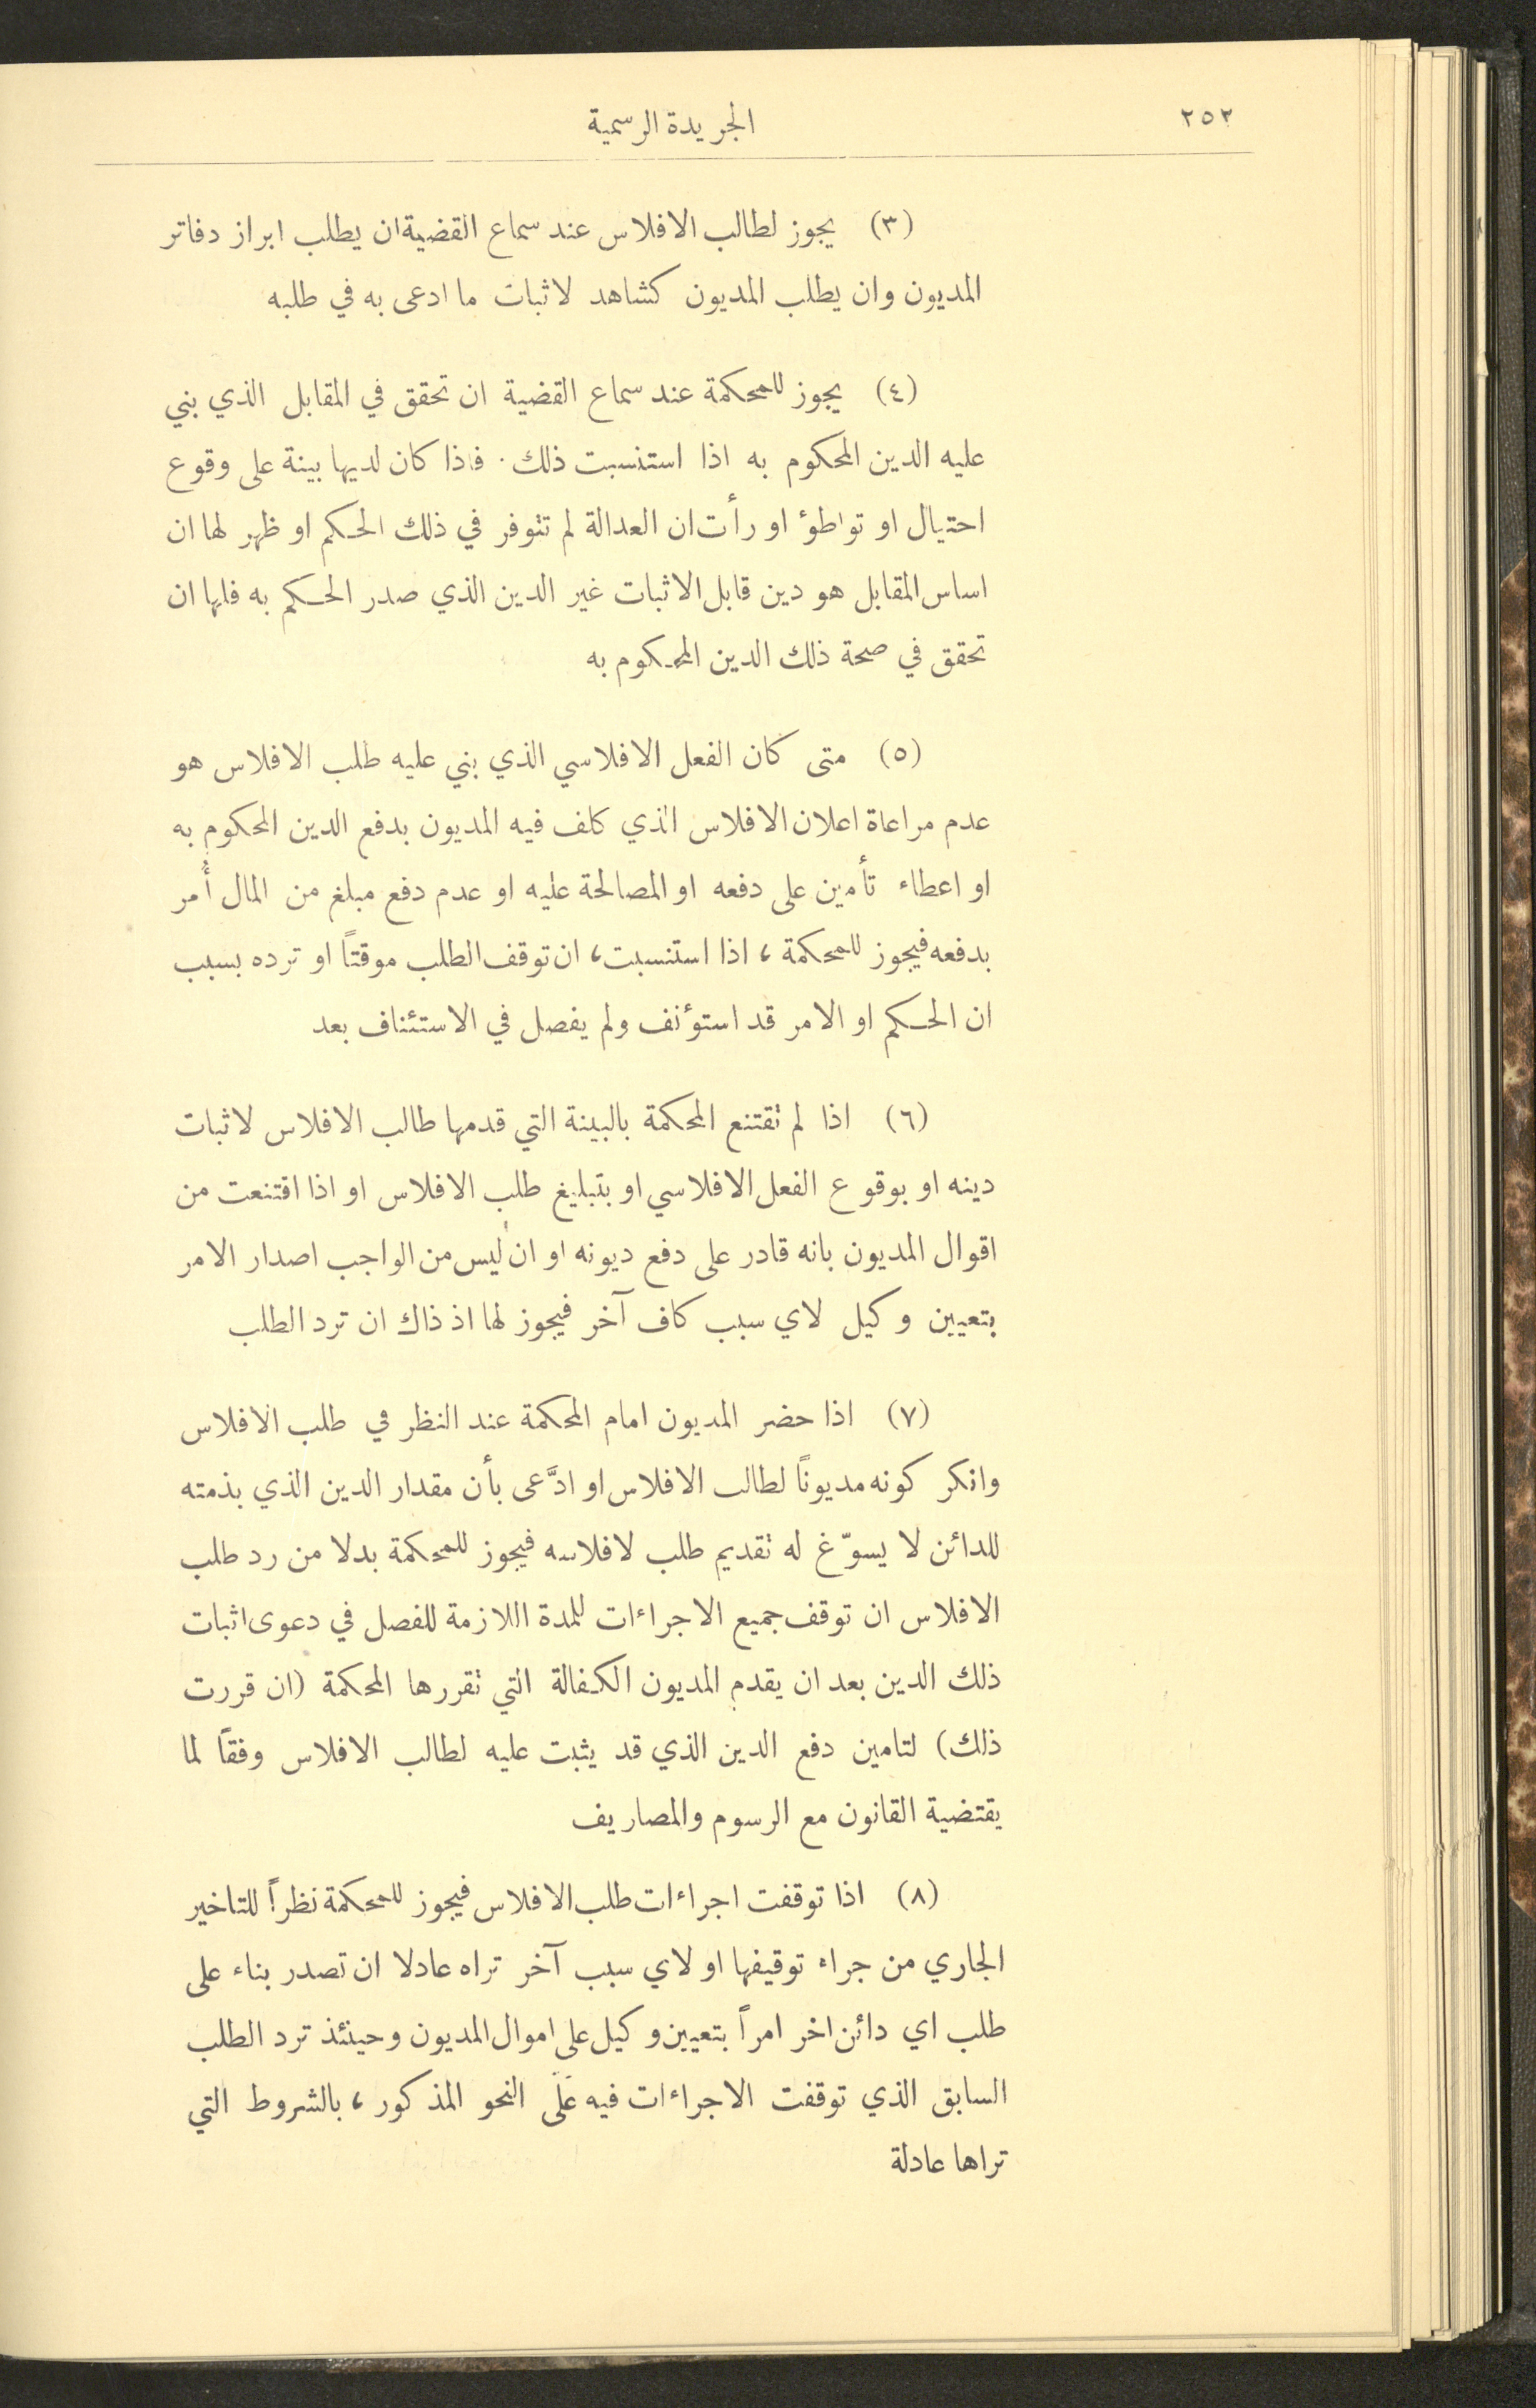 ٢٥٢
الجريدة الرسمية
(٣) يجوز لطالب الافلاس عند سماع القضية ان يطلب ابراز دفاتر
المديون وان يطلب المديون كشاهد لاثبات ما ادعى به في طلبه
(٤) يجوز للمحكمة عند سماع القضية ان تحقق في المقابل الذي بني
عليه الدين المحكوم به اذا استنسبت ذلك. فاذا كان لديها بينة على وقوع
احتيال او تواطؤ او رأت ان العدالة لم تتوفر في ذلك الحكم او ظهر لها ان
اساس المقابل هو دين قابل الاثبات غير الدين الذي صدر الحكم به فلها ان
تحقق في صحة ذلك الدين المحكوم به
(٥) متى كان الفعل الافلاسي الذي بني عليه طلب الافلاس هو
عدم مراعاة اعلان الافلاس الذي كلف فيه المديون بدفع الدين المحكوم به
او اعطاء تأمين على دفعه او المصالحة عليه او عدم دفع مبلغ من المال أُمر
بدفعه فيجوز للمحكمة، اذا استنسبت، ان توقف الطلب موقتاً او ترده بسبب
ان الحكم او الامر قد استؤنف ولم يفصل في الاستئناف بعد
(٦) اذا لم تقتنع المحكمة بالبينة التي قدمها طالب الافلاس لاثبات
دينه او بوقوع الفعل الافلاسي او بتبليغ طلب الافلاس او اذا اقتنعت من
اقوال المديون بانه قادر على دفع ديونه او ان ليس من الواجب اصدار الامر
بتعيين وكيل لاي سبب كاف آخر فيجوز لها اذ ذاك ان ترد الطلب
(٧) اذا حضر المديون امام المحكمة عند النظر في طلب الافلاس
وانكر كونه مديوناً لطالب الافلاس او ادَّعى بأن مقدار الدين الذي بذمته
للدائن لا يسوّغ له تقديم طلب لافلاسه فيجوز للمحكمة بدلا من رد طلب
الافلاس ان توقف جميع الاجراءات للمدة اللازمة للفصل في دعوى اثبات
ذلك الدين بعد ان يقدم المديون الكفالة التي تقررها المحكمة (ان قررت
ذلك) لتامين دفع الدين الذي قد يثبت عليه لطالب الافلاس وفقاً لما
يقتضية القانون مع الرسوم والمصاريف
(٨) اذا توقفت اجراءات طلب الافلاس فيجوز للمحكمة نظراً للتاخير
الجاري من جراء توقيفها او لاي سبب آخر تراه عادلا ان تصدر بناء على
طلب اي دائن اخر امراً بتعيين وكيل على اموال المديون وحينئذ ترد الطلب
السابق الذي توقفت الاجراءات فيه على النحو المذكور، بالشروط التي
تراها عادلة